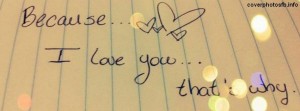 coverphotosfb.info
Because...
I love you...
that's why.